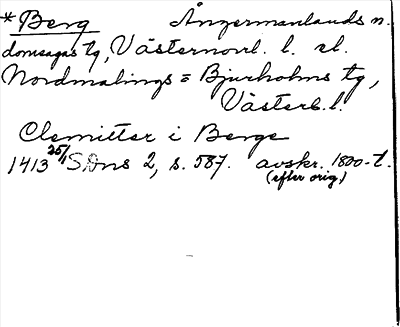 *Berg Ångermanlands n.
domsagas tg, Västernorrl. l. el.
Nordmalings = Bjurholms tg,
Västerb. l.
Clemitter i Berge
1413 25/1 SDns 2, s. 587. avskr. 1800-t.
(efter orig)